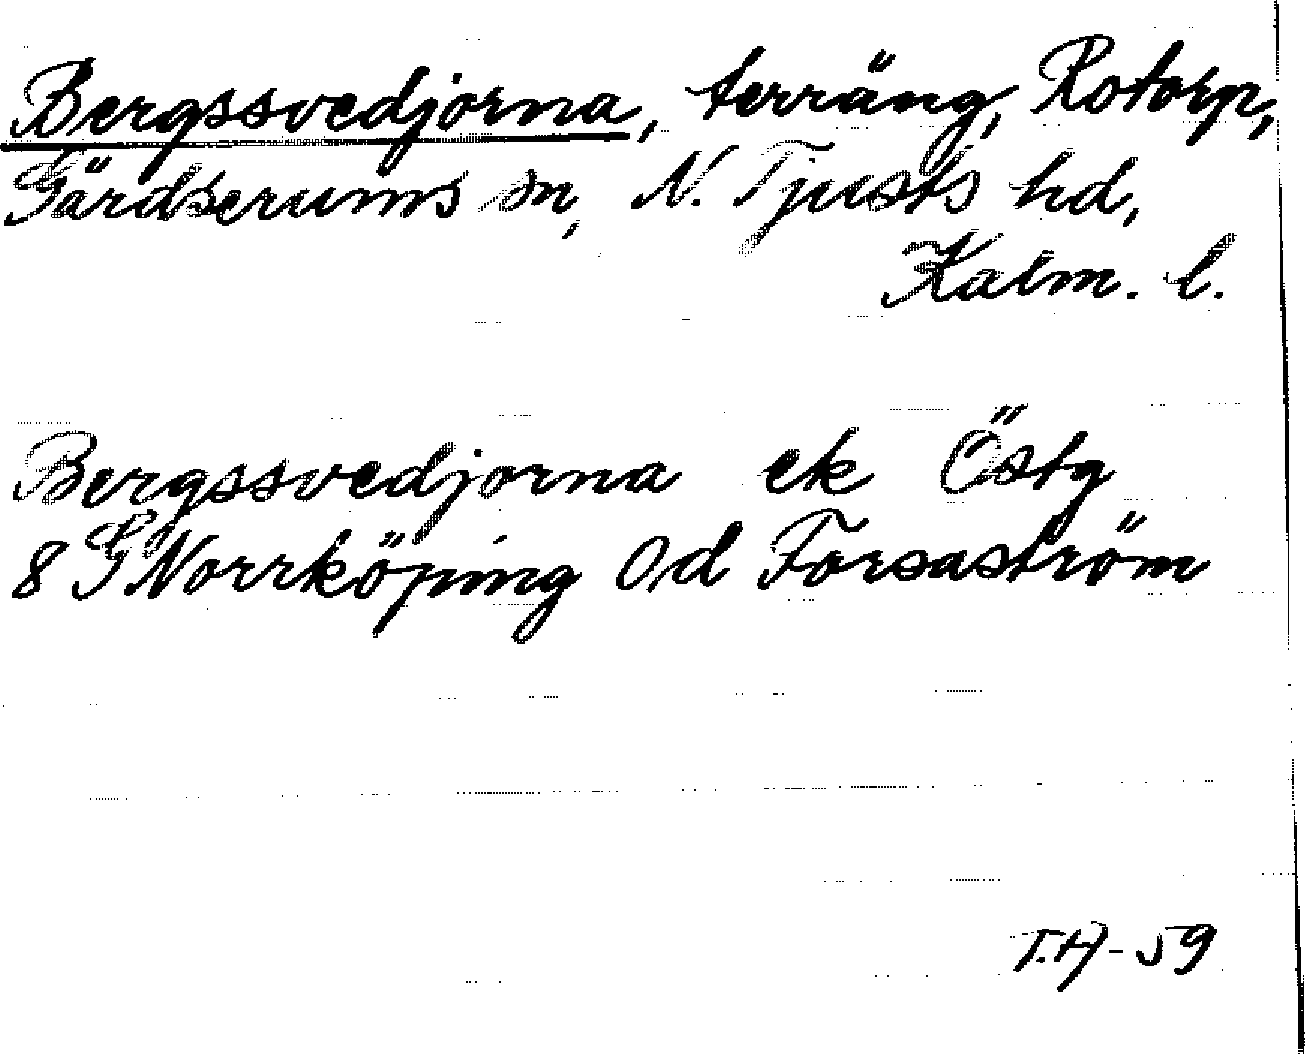 Bergssvedjorna, terräng, Rotorp,
Gärdserums sn, N. Tjusts hd,
Kalm. l.
Bergssvedjorna ek Östg
8 G Norrköping Od Forsaström
T.H-59